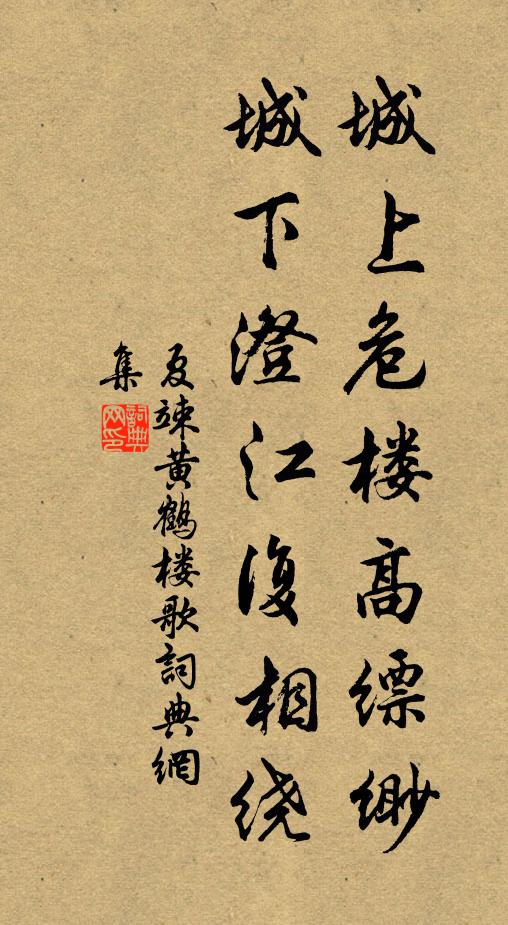 城上危楼高缥缈
城下澄江復相绕
夏竦黄鹤楼歌詞典網
集
詞典网印